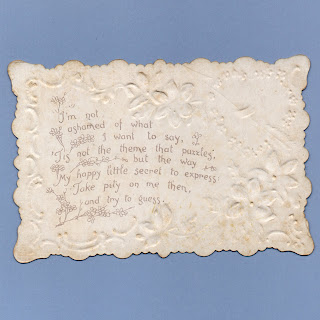 I'm not
ashamed of what
I want to say,
'Tis not the theme that puzzles,
but the way
My happy little secret to express
Take pity on me then,
and try to guess.